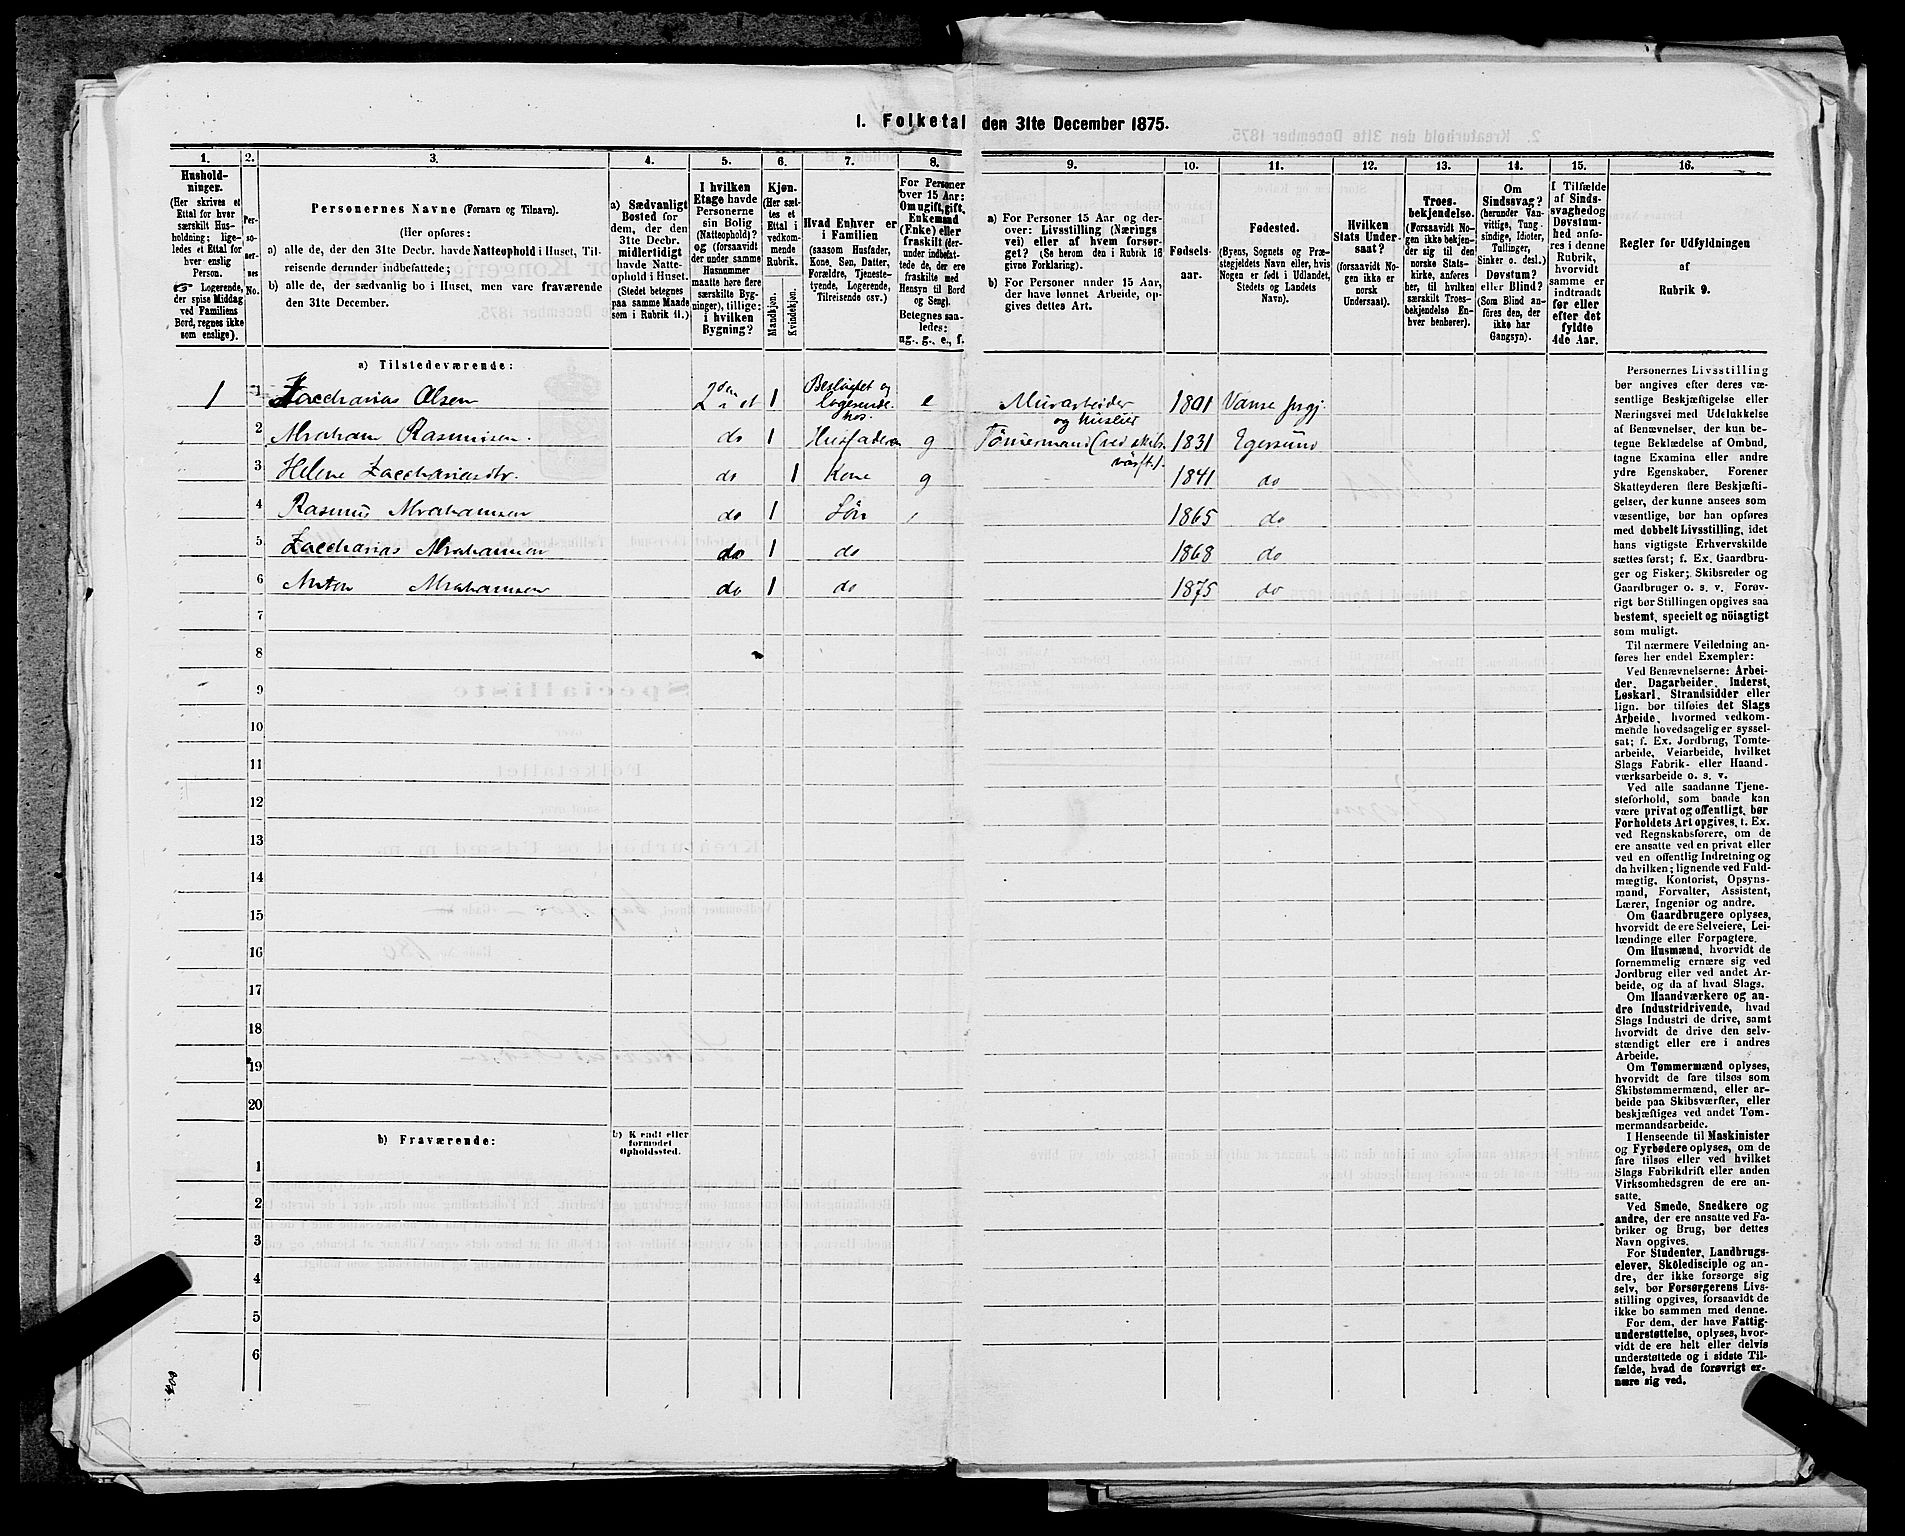 1. Folketal den 31te December 1875.
1. 2. 3. 4. 5. 6. 7. 8. 9. 10. 11. 12. 13. 14. 15. 16.
Hushold-
ninger.
(Her skrives et
Ettal for hver
særskilt Hus-
holdning; lige-
ledes et Ettal for
hver enslig
Person.
☞ Logerende,
der spise Middag
ved Familiens
Bord, regnes ikke
som enslige).
Per-
so-
ner-
nes
No.
Personernes Navne (Fornavn og Tilnavn).
(Her opføres:
a) alle de, der den 31te Decbr. havde Natteophold i Huset, Til-
reisende derunder indbefattede;
b) alle de, der sædvanlig bo i Huset, men vare fraværende
den 31te December.
a) Sædvanligt
Bosted for
dem, der den
31te Decbr.
midlertidigt
havde Natte-
ophold i Huset.
(Stedet betegnes
paa samme Maade
som i Rubrik 11.)
I hvilken
Etage havde
Personerne
sin Bolig
(Natteophold)?
og (forsaavidt
der under samme
Husnummer
maatte høre flere
særskilte Byg-
ninger), tillige:
i hvilken
Bygning?
Kjøn.
(Her sæt-
tes et
Ettal i
vedkom-
mende
Rubrik.
Mandkjøn.
Kvindekjøn.
Hvad Enhver er
i Familien
(saasom Husfader,
Kone, Søn, Datter,
Forældre, Tjeneste-
tyende, Logerende,
Tilreisende osv.)
For Personer
over 15 Aar:
Om ugift, gift,
Enkemand
(Enke) eller
fraskilt (der-
under indbefat-
tede de, der ere
fraskilte med
Hensyn til Bord
og Seng).
Betegnes saa-
ledes:
ug., g., e., f.
a) For Personer 15 Aar og der-
over: Livsstilling (Nærings
vei) eller af hvem forsør-
get? (Se herom den i Rubrik 16
givne Forklaring).
b) For Personer under 15 Aar,
der have lønnet Arbeide, op-
gives dettes Art.
Fødsels-
aar.
Fødested.
(Byens, Sognets og Præ-
stegjeldets Navn eller, hvis
Nogen er født i Udlandet,
Stedets og Landets
Navn).
Hvilken
Stats Under-
saat?
(forsaavidt No-
gen ikke er
norsk
Undersaat).
Troes-
bekjendelse.
(Forsaavidt No-
gen ikke bekjen-
der sig til den
norske Stats-
kirke, anføres
her, til hvilken
særskilt Troes-
bekjendelse En-
hver henhører).
Om
Sindssvag?
(herunder Van-
vittige, Tung-
sindige, Idioter,
Tullinger,
Sinker o. desl.)
Døvstum?
eller Blind?
(Som Blind an-
føres den, der
ikke har
Gangsyn).
I Tilfælde
af Sinds-
svaghed og
Døvstum-
hed anfø-
res i denne
Rubrik,
hvorvidt
samme er
indtraadt
før eller
efter det
fyldte
4de Aar.
Regler for Udfyldningen
af
Rubrik 9.
a) Tilstedeværende:
1 1 Zaccharias Olsen 2den et 1 Beslægtet og logerende hos e Murarbeider og Husleier 1801 Vanse Prgj.
2 Abraham Rasmussen do 1 Husfaderen g Tømmermand (ved skibsværft.) 1831 Egersund
3 Helene Zacchariasdtr. do 1 Kone g 1841 do
4 Rasmus Abrahamsen do 1 Søn 1865 do
5 Zaccharias Abrahamsen do 1 do 1868 do
6 Anton Abrahamsen do 1 do 1875 do
7
8
9
10
11
12
13
14
15
16
17
18
19
20
b) Fraværende:
b) Kjendt eller
formodet
Opholdssted.
1
2
3
4
5
6
Personernes Livsstilling
bør angives efter deres væ-
sentlige Beskjæftigelse eller
Næringsvei med Udelukkelse
af Benævnelser, der kun be-
tegne Beklædelse af Ombud,
tagne Examina eller andre
ydre Egenskaber. Forener
Skatteyderen flere Beskjæfti-
gelser, der kunne ansees som
væsentlige, bør han opføres
med dobbelt Livsstilling, idet
hans vigtigste Erhvervskilde
sættes først; f. Ex. Gaardbru-
ger og Fisker; Skibsreder og
Gaardbruger o. s. v. Forøv-
rigt bør Stillingen opgives saa
bestemt, specielt og nöiagtigt
som muligt.
Til nærmere Veiledning an-
føres her endel Exempler:
Ved Benævnelserne: Arbei-
der, Dagarbeider, Inderst,
Løskarl, Strandsidder eller
lign. bør tilføies det Slags
Arbeide, hvormed vedkom-
mende hovedsagelig er syssel-
sat; f. Ex. Jordbrug, Tomte-
arbeide, Veiarbeide, hvilket
Slags Fabrik- eller Haand-
værksarbeide o. s. v.
Ved alle saadanne Tjene-
steforhold, som baade kan
være privat og offentligt, bør
Forholdets Art opgives, t. Ex.
ved Regnskabsførere, om de
ere ansatte ved en privat eller
ved en offentlig Indretning og
da hvilken; lignende ved Fuld-
mægtig, Kontorist, Opsyns-
mand, Forvalter, Assistent,
Lærer, Ingeniør og andre.
Om Gaardbrugere oplyses,
hvorvidt de ere Selveiere, Lei-
lændinge eller Forpagtere.
Om Husmænd, hvorvidt de
fornemmelig ernære sig ved
Jordbrug eller ved andet Ar-
beide, og da af hvad Slags.
Om Haandværkere og an-
dre Industridrivende, hvad
Slags Industri de drive, samt
hvorvidt de drive den selv-
stændigt eller ere i andres
Arbeide.
Om Tømmermænd oplyses,
hvorvidt de fare tilsøs som
Skibstømmermænd, eller ar-
beide paa Skibsværfter, eller
beskjæftiges ved andet Tøm-
mermandsarbeide.
I Henseende til Maskinister
og Fyrbødere oplyses, om de
fare tilsøs eller ved hvilket
Slags Fabrikdrift eller anden
Virksomhedsgren de ere an-
satte.
Ved Smede, Snedkere og
andre, der ere ansatte ved Fa-
briker og Brug, bør dettes
Navn opgives.
For Studenter, Landbrugs-
elever, Skoledisciple og an-
dre, der ikke forsørge sig
selv, bør Forsørgerens Livs-
stilling opgives, forsaavidt de
ikke bo sammen med denne.
For dem, der have Fattig-
understøttelse, oplyses, hvor-
vidt de ere helt eller delvis
understøttede og i sidste Til-
fælde, hvad de forøvrigt er-
nære sig ved.